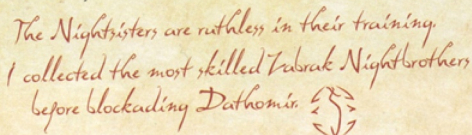 The Nightsisters are ruthless in their training.
I collected the most skilled Zabrak Nightbrothers
before blockading Dathomir.